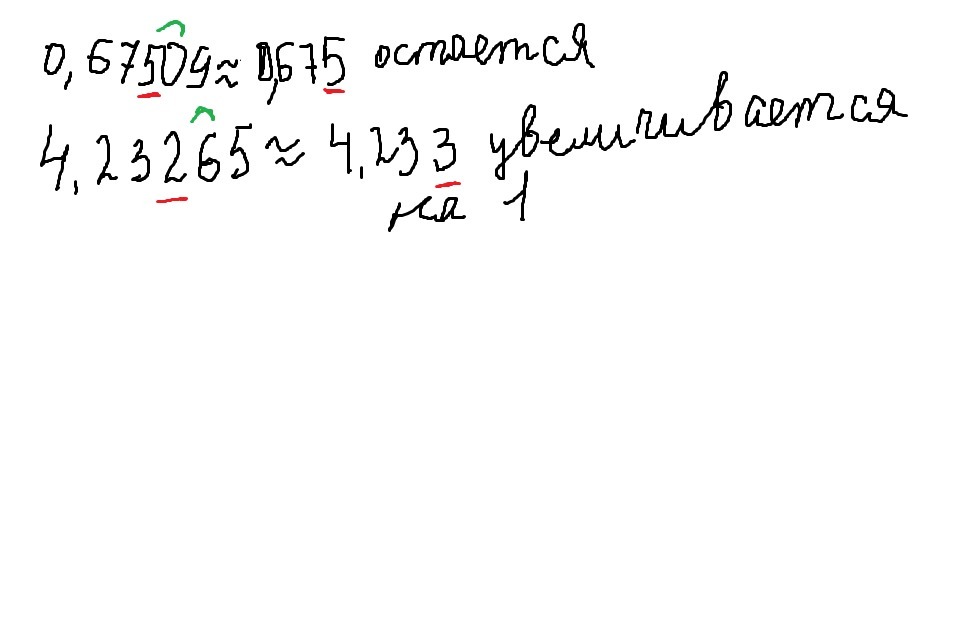 0,67509≈0,675 остается
4,23265≈4,233 увеличивается
на 1